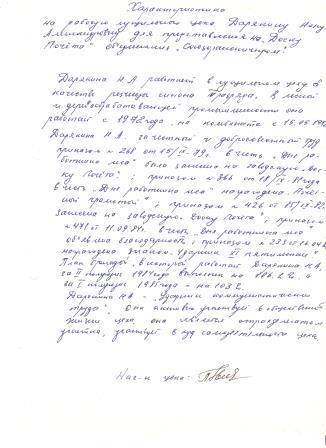 Характеристика
на рабочую сушильного цеха Дарякину Нону
для представления на Доску
Почёта" объединения „Союзфанспичпром".
Дарякина Н.А. работает в сушильном цехе в
качестве резчицы шпона фрезера. В лесной
и деревообрабатывающей промышленности она
работает с 1972 года, на комбинате с
Дарякина Н.А. за честный и добросовестный труд
приказом № 268 от 15/IX-79г. в честь „Дня ра-
ботника леса" была занесена на заводскую Дос-
ку Почёта"; приказом № 366 от 18/IX-
в честь „Дня работника леса" награждена Почёт-
ной грамотой"; приказом № 426 от 15/IX-83
занесена на заводскую Доску Почёта"; приказом
№ 471 от 11.09.84г. в честь „Дня работника леса"
объявлена благодарность; приказом № 233 от
награждена знаком „Ударник XI пятилетки"
План бригады, в которой работает Дарякина Н.А.
за II полугодие 1984 года выполнен на 106.2 %, а
за I полугодие 1985 года - на 103 %.
Дарякина Н.А. - „Ударник коммунистического
труда". Она активно участвует в общественной
жизни цеха, она является
участка, участвует в худ. самодеятельности цеха.
Нач-к цеха: